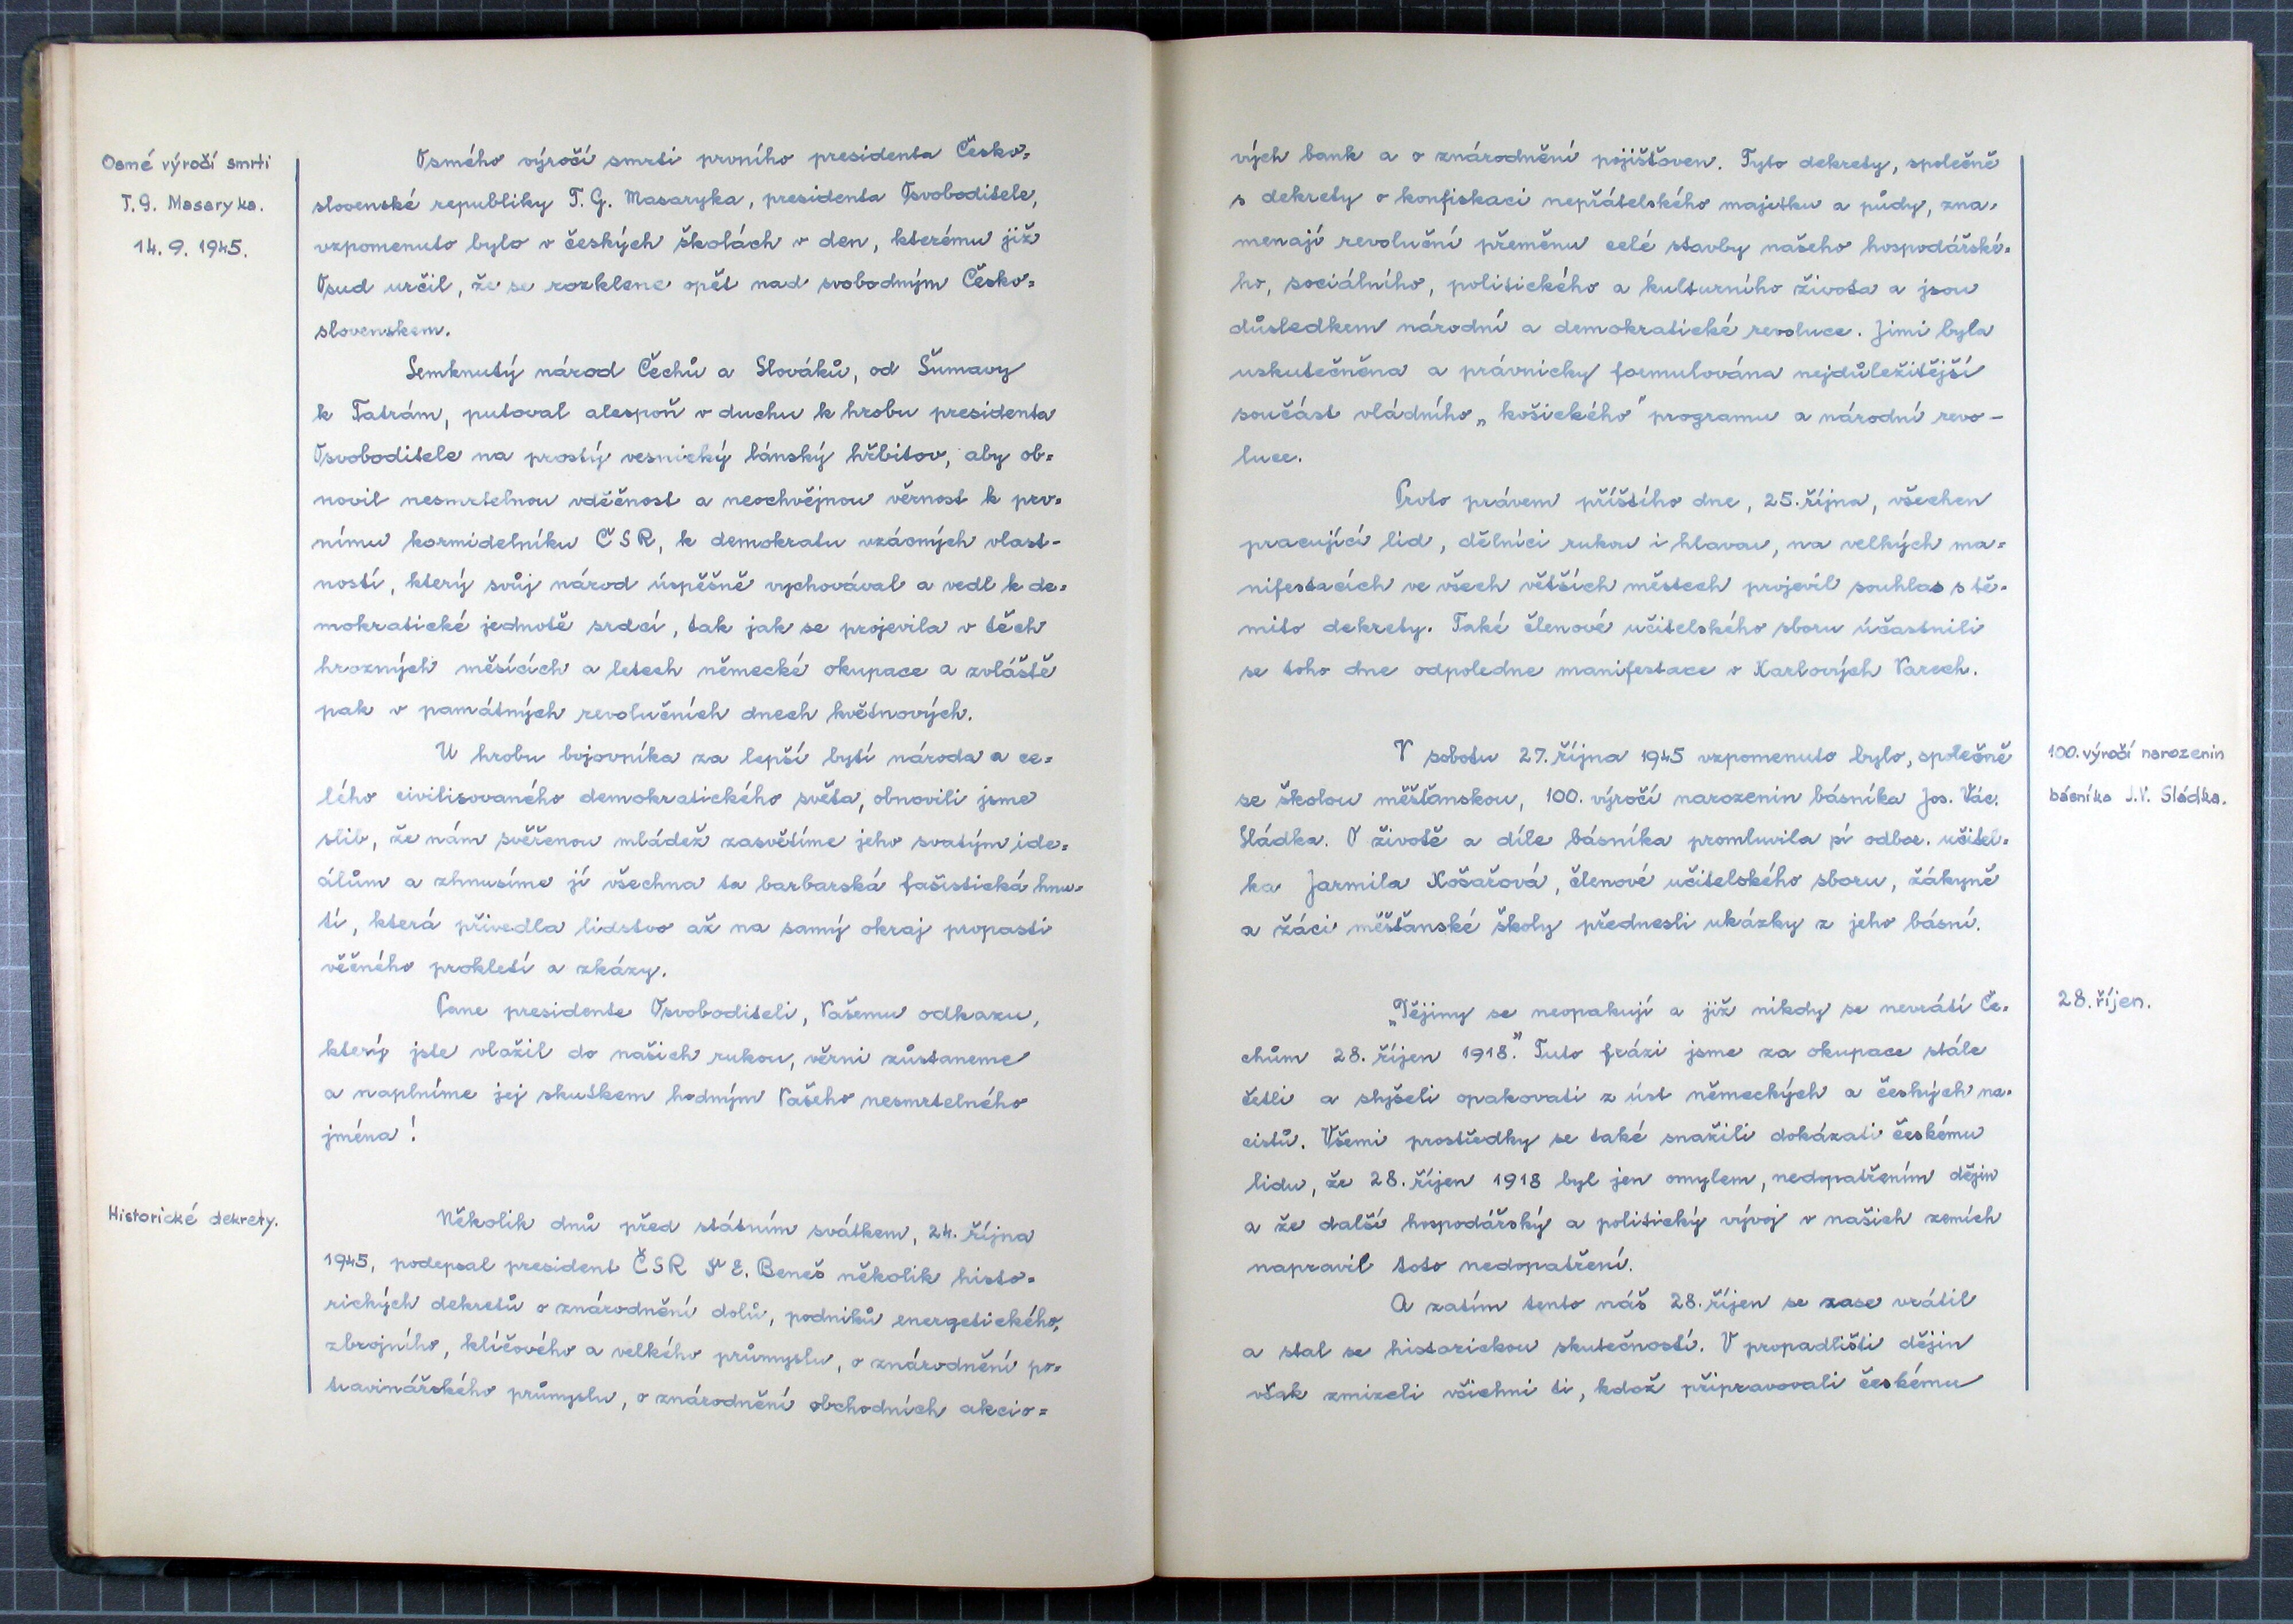 Osmé výročí smrti
T. G. Masaryka.
14. 9. 1945.
Osmého výročí smrti prvního presidenta Česko=
slovenské republiky T. G. Masaryka, presidenta Osvoboditele,
vzpomenuto bylo v českých školách v den, kterému již
Osud určil, že se rozklene opět nad svobodným Česko=
slovenskem.
Semknutý národ Čechů a Slováků, od Šumavy
k Tatrám, putoval alespoň v duchu k hrobu presidenta
Osvoboditele na prostý vesnický lánský hřbitov, aby ob=
novil nesmrtelnou vděčnost a neochvějnou věrnost k prv=
nímu kormidelníku ČSR, k demokratu vzácných vlast-
ností, který svůj národ úspěšně vychovával a vedl k de=
mokratické jednotě srdcí, tak jak se projevila v těch
hrozných měsících a letech německé okupace a zvláště
pak v památných revolučních dnech květnových.
U hrobu bojovníka za lepší bytí národa a ce=
lého civilisovaného demokratického světa, obnovili jsme
slib, že nám svěřenou mládež zasvětíme jeho svatým ide=
álům a zhnusíme jí všechna ta barbarská fašistická hnu=
tí, která přivedla lidstvo až na samý okraj propasti
věčného prokletí a zkázy.
Pane presidente Osvoboditeli, Vašemu odkazu,
který jste vložil do našich rukou, věrni zůstaneme
a naplníme jej skutkem hodným Vašeho nesmrtelného
jména!
Historické dekrety.
Několik dnů před státním svátkem, 24. října
1945, podepsal president ČSR Dr E. Beneš několik histo=
rických dekretů o znárodnění dolů, podniků energetického,
zbrojního, klíčového a velkého průmyslu, o znárodnění po=
travinářského průmyslu, o znárodnění obchodních akcio=
vých bank a o znárodnění pojišťoven. Tyto dekrety, společně
s dekrety o konfiskaci nepřátelského majetku a půdy, zna=
menají revoluční přeměnu celé stavby našeho hospodářské=
ho, sociálního, politického a kulturního života a jsou
důsledkem národní a demokratické revoluce. Jimi byla
uskutečněna a právnicky formulována nejdůležitější
součást vládního „košického" programu a národní revo-
luce.
Proto právem příštího dne, 25. října, všechen
pracující lid, dělníci rukou i hlavou, na velkých ma=
nifestacích ve všech větších městech projevil souhlas s tě=
mito dekrety. Také členové učitelského sboru účastnili
se toho dne odpoledne manifestace v Karlových Varech.
100. výročí narozenin
básníka J. V. Sládka.
V sobotu 27. října 1945 vzpomenuto bylo, společně
se školou měšťanskou, 100. výročí narozenin básníka Jos. Vác.
Sládka. O životě a díle básníka promluvila pí odbor. učitel=
ka Jarmila Košařová, členové učitelského sboru, žákyně
a žáci měšťanské školy přednesli ukázky z jeho básní.
28. říjen.
„Dějiny se neopakují a již nikdy se nevrátí Če=
chům 28. říjen 1918." Tuto frázi jsme za okupace stále
četli a slyšeli opakovati z úst německých a českých na=
cistů. Všemi prostředky se také snažili dokázati českému
lidu, že 28. říjen 1918 byl jen omylem, nedopatřením dějin
a že další hospodářský a politický vývoj v našich zemích
napravil toto nedopatření.
A zatím tento náš 28. říjen se zase vrátil
a stal se historickou skutečností. V propadlišti dějin
však zmizeli všichni ti, kdož připravovali českému